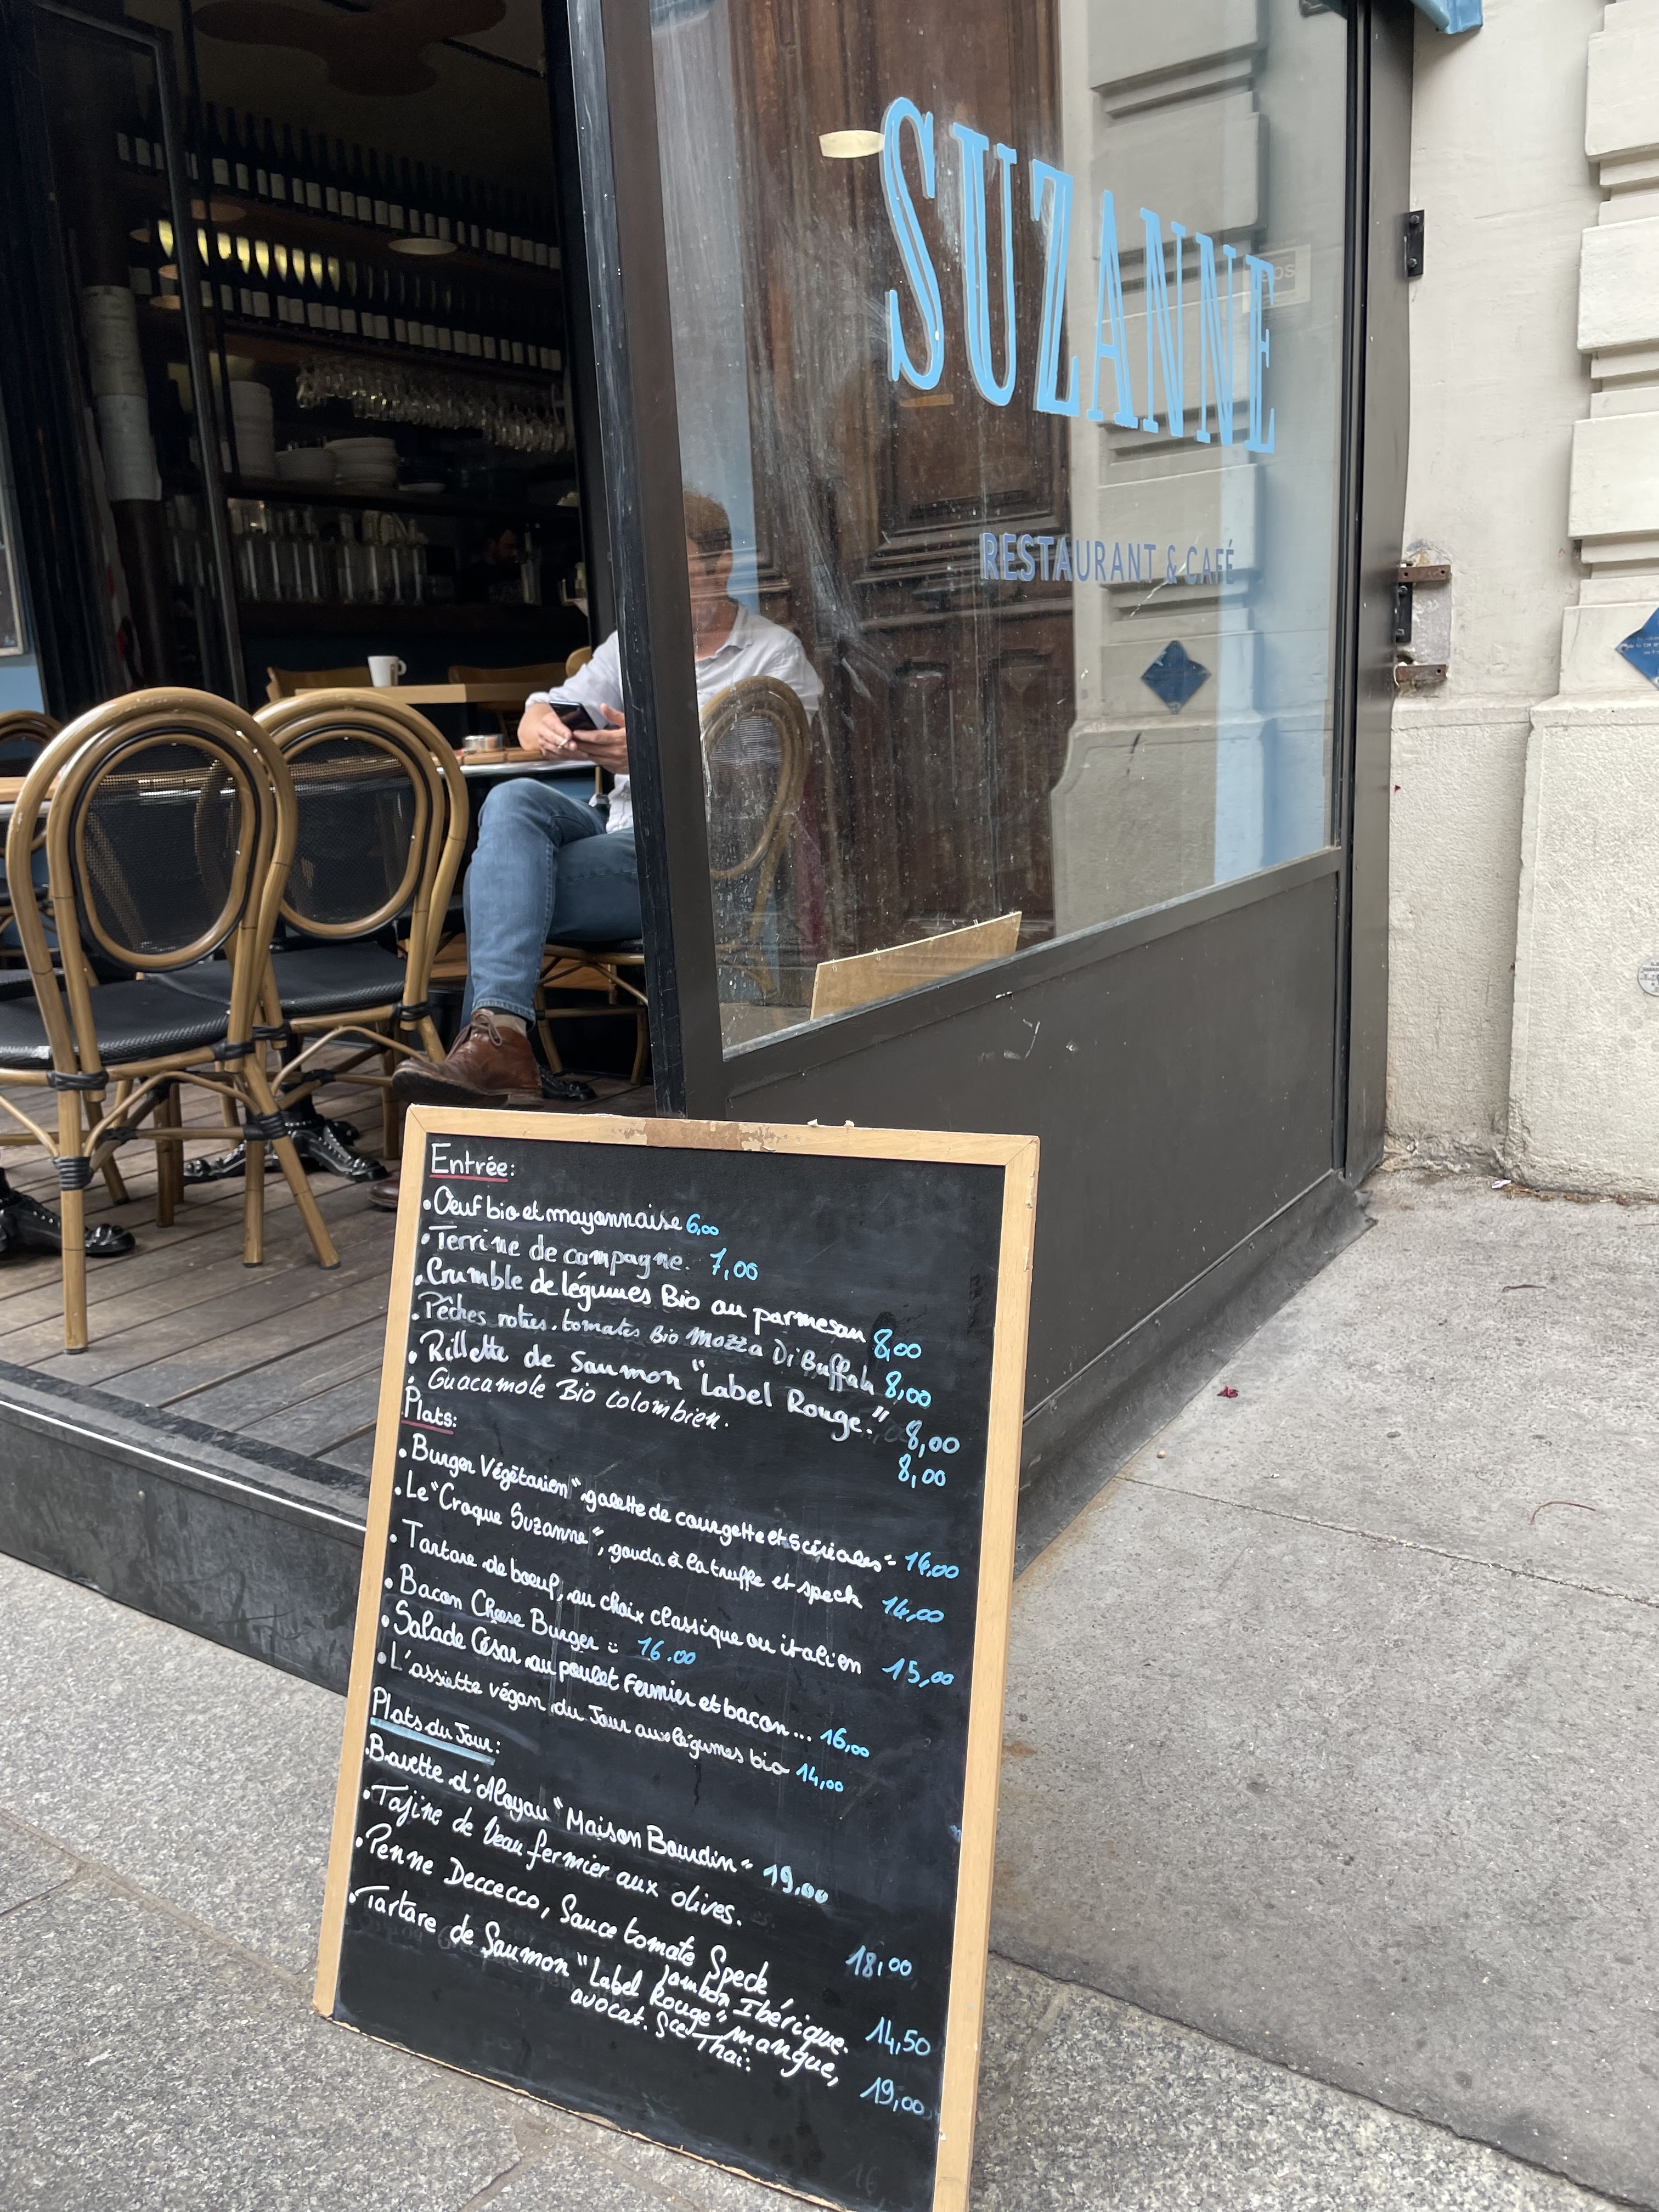 SUZANNE
RESTAURANT & CAFÉ
Entrée:
• Oeuf bio et mayonnaise 6,00
• Terrine de campagne. 7,00
• Crumble de légumes Bio au parmesan 8,00
• Pêches roties. tomates Bio Mozza Di Buffala 8,00
• Rillette de Saumon "Label Rouge." 8,00
• Guacamole Bio colombien. 8,00
Plats:
• Burger Végétarien "galette de courgette et 5 céréales" 14,00
• Le "Croque Suzanne", gouda à la truffe et speck 14,00
• Tartare de boeuf, au choix classique ou italien 15,00
• Bacon Cheese Burger : 16.00
• Salade César au poulet fermier et bacon... 16,00
• L'assiette végan du Jour aux légumes bio 14,00
Plats du Jour:
• Bavette d'Aloyau "Maison Bourdin" 19,00
• Tajine de Veau fermier aux olives. 18,00
• Penne Deccecco, Sauce tomate Speck
Jambon Ibérique. 14,50
• Tartare de Saumon "Label Rouge" mangue,
avocat. Sce Thai: 19,00